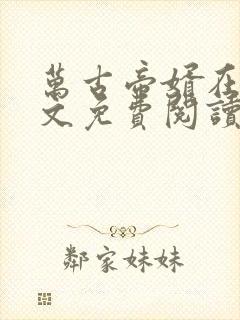 萬古帝婿在
文免費閱讀
鄰家妹妹